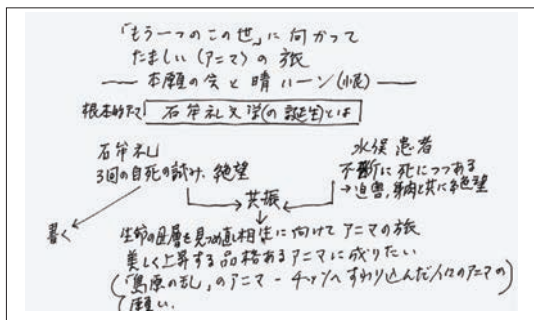 「もう一つのこの世」に向かって
たましい〈アニマ〉の旅
── 本願の会と晴 ハーン(恨) ──
根本的テーマ 石牟礼文学(の誕生)とは
石牟礼
3回の自死の試み、絶望
水俣患者
不断に死につつある
→迫害,身内と共に絶望
共振
書く
生命の図層を見つめ直し相生に向けてアニマの旅
美しく上昇する品格あるアニマに成りたい
(「島原の乱」のアニマ ― チッソへすわり込んだ人々のアニマの
願い.